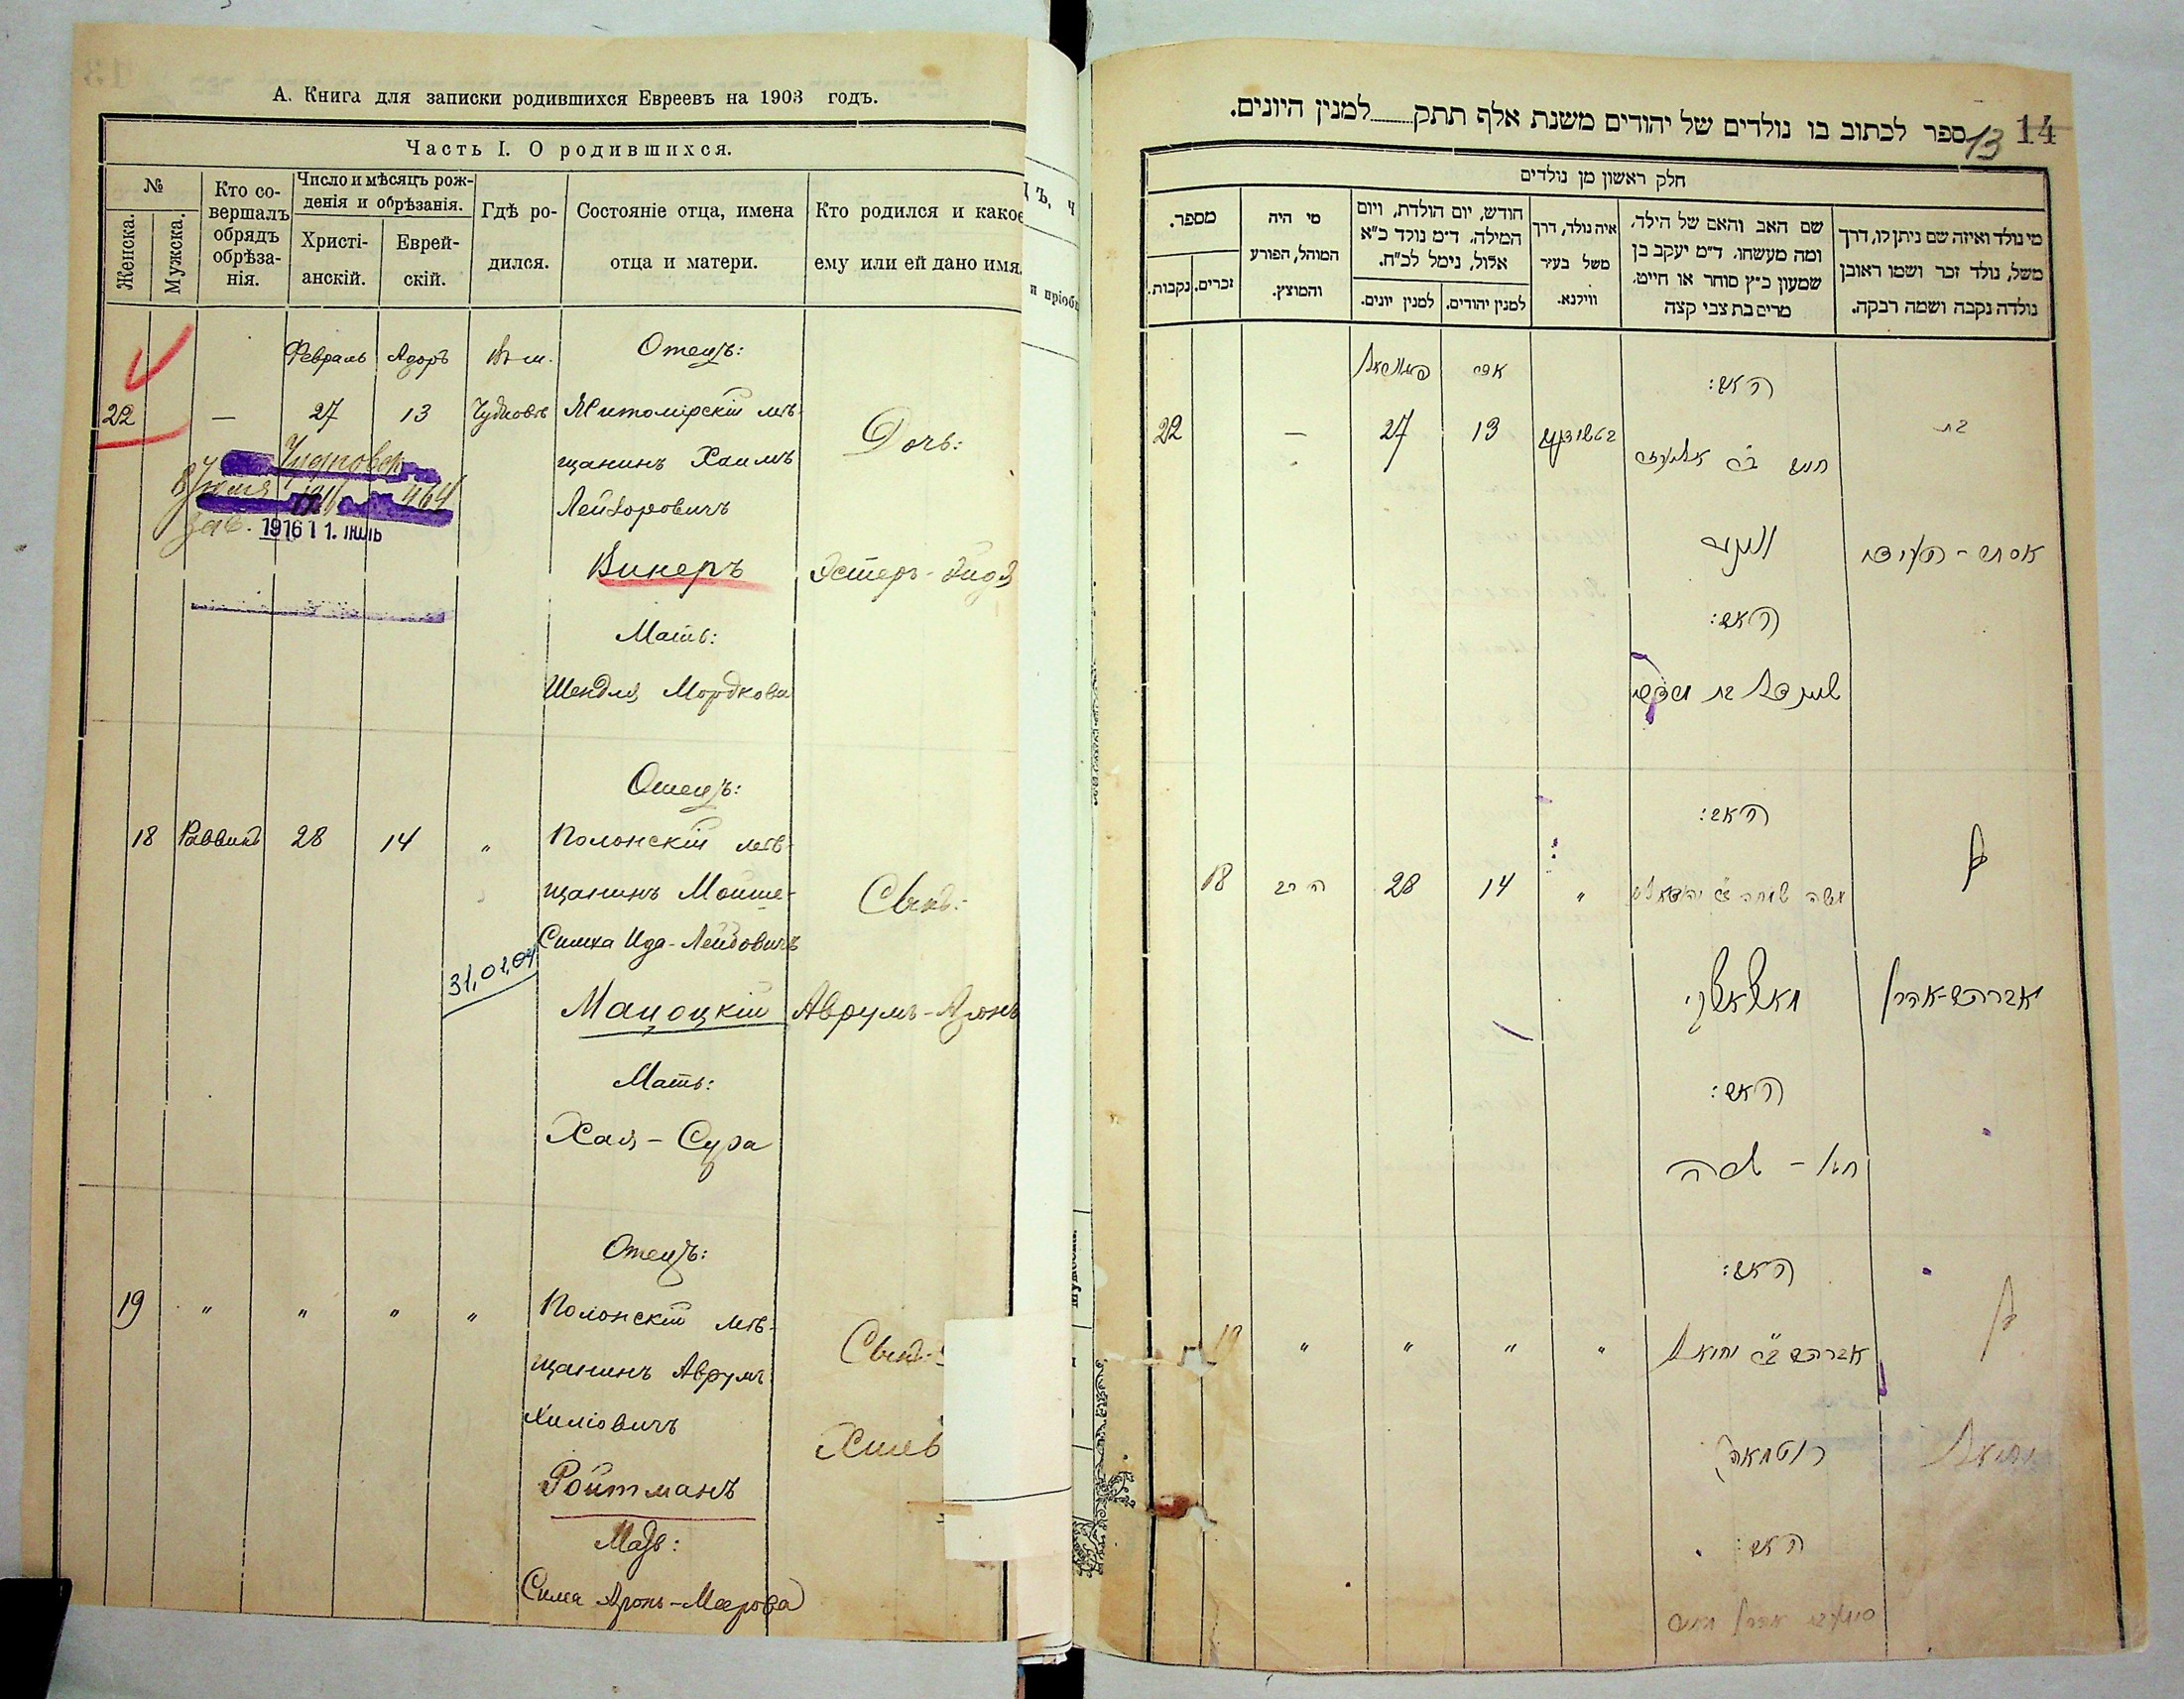 А. Книга для записки родившихся Евреевъ на 1903 годъ.
Часть I. О родившихся.
№
Женска.
Мужска.
Кто со-
вершалъ
обрядъ
обрѣза-
нія.
Число и мѣсяцъ рож-
денія и обрѣзанія.
Христі-
анскій.
Еврей-
скій.
Гдѣ ро-
дился.
Состояніе отца, имена
отца и матери.
Кто родился и какое
ему или ей дано имя.
22
—
Февраль
27
Адоръ
13
Въ м.
Чудновъ
Отецъ:
Житомірскій мѣ-
щанинъ Хаимъ
Лейзоровичъ
Винеръ
Мать:
Шендля Мордкова
Дочь:
Эстеръ-
1916 11. Іюль
18
Раввинъ
28
14
„
Отецъ:
Полонскій мѣ-
щанинъ Мойше-
Симха Ида-Лейбовичъ
Мацоцкій
Мать:
Хая - Сура
Сынъ:
Аврумъ-Аронъ
31,01,04
19
„
„
„
„
Отецъ:
Полонскій мѣ-
щанинъ Аврумъ
Хиліовичъ
Ройтманъ
Мать:
Сима Аронъ-Меерова
Сынъ:
Хиль
14
13
ספר לכתוב בו נולדים של יהודים משנת אלף תתק למנין היונים.
חלק ראשון מן נולדים
מי נולד ואיזה שם ניתן לו, דרך
משל, נולד זכר ושמו ראובן
נולדה נקבה ושמה רבקה.
שם האב והאם של הילד,
ומה מעשהו. ד״מ יעקב בן
שמעון כ״ץ סוחר או חייט,
מרים בת צבי קצה
איה נולד, דרך
משל בעיר
ווילנא.
חודש, יום הולדת, ויום
המילה. ד״מ נולד כ״א
אלול, נימל לכ״ח.
למנין יהודים.
למנין יונים.
מי היה
המוהל, הפורע
והמוצץ.
מספר.
זכרים.
נקבות.
בת
האב:
אדר
13
27
—
22
חיים בר אליעזר
ווינער
האם:
שיינדל בת מרדכי
בן
אברהם-אהרן
האב:
„
14
28
הרב
18
משה שמחה
מאצאצקי
האם:
חיה - שרה
בן
יחיאל
האב:
אברהם בר יחיאל
„
„
„
„
19
רוטמאן
האם: